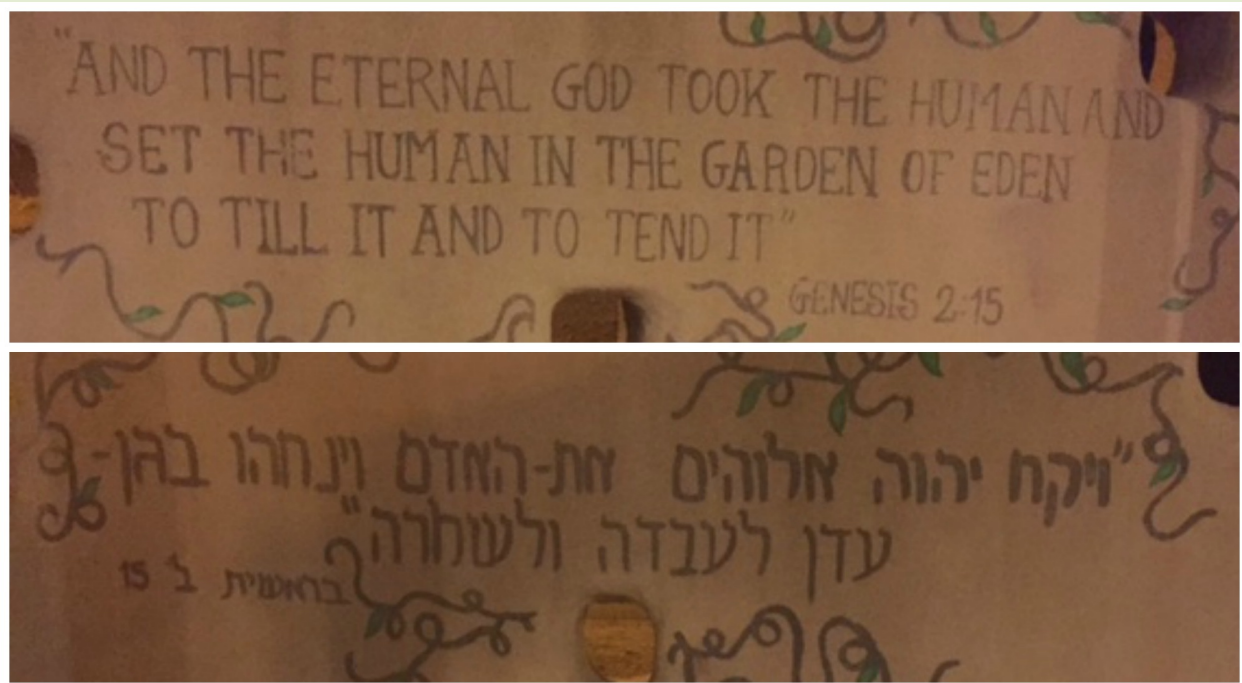 "AND THE ETERNAL GOD TOOK THE HUMAN AND
SET THE HUMAN IN THE GARDEN OF EDEN
TO TILL IT AND TO TEND IT"
GENESIS 2:15
"ויקח יהוה אלוהים את-האדם וינחהו בגן-
עדן לעבדה ולשמרה"
בראשית ב' 15